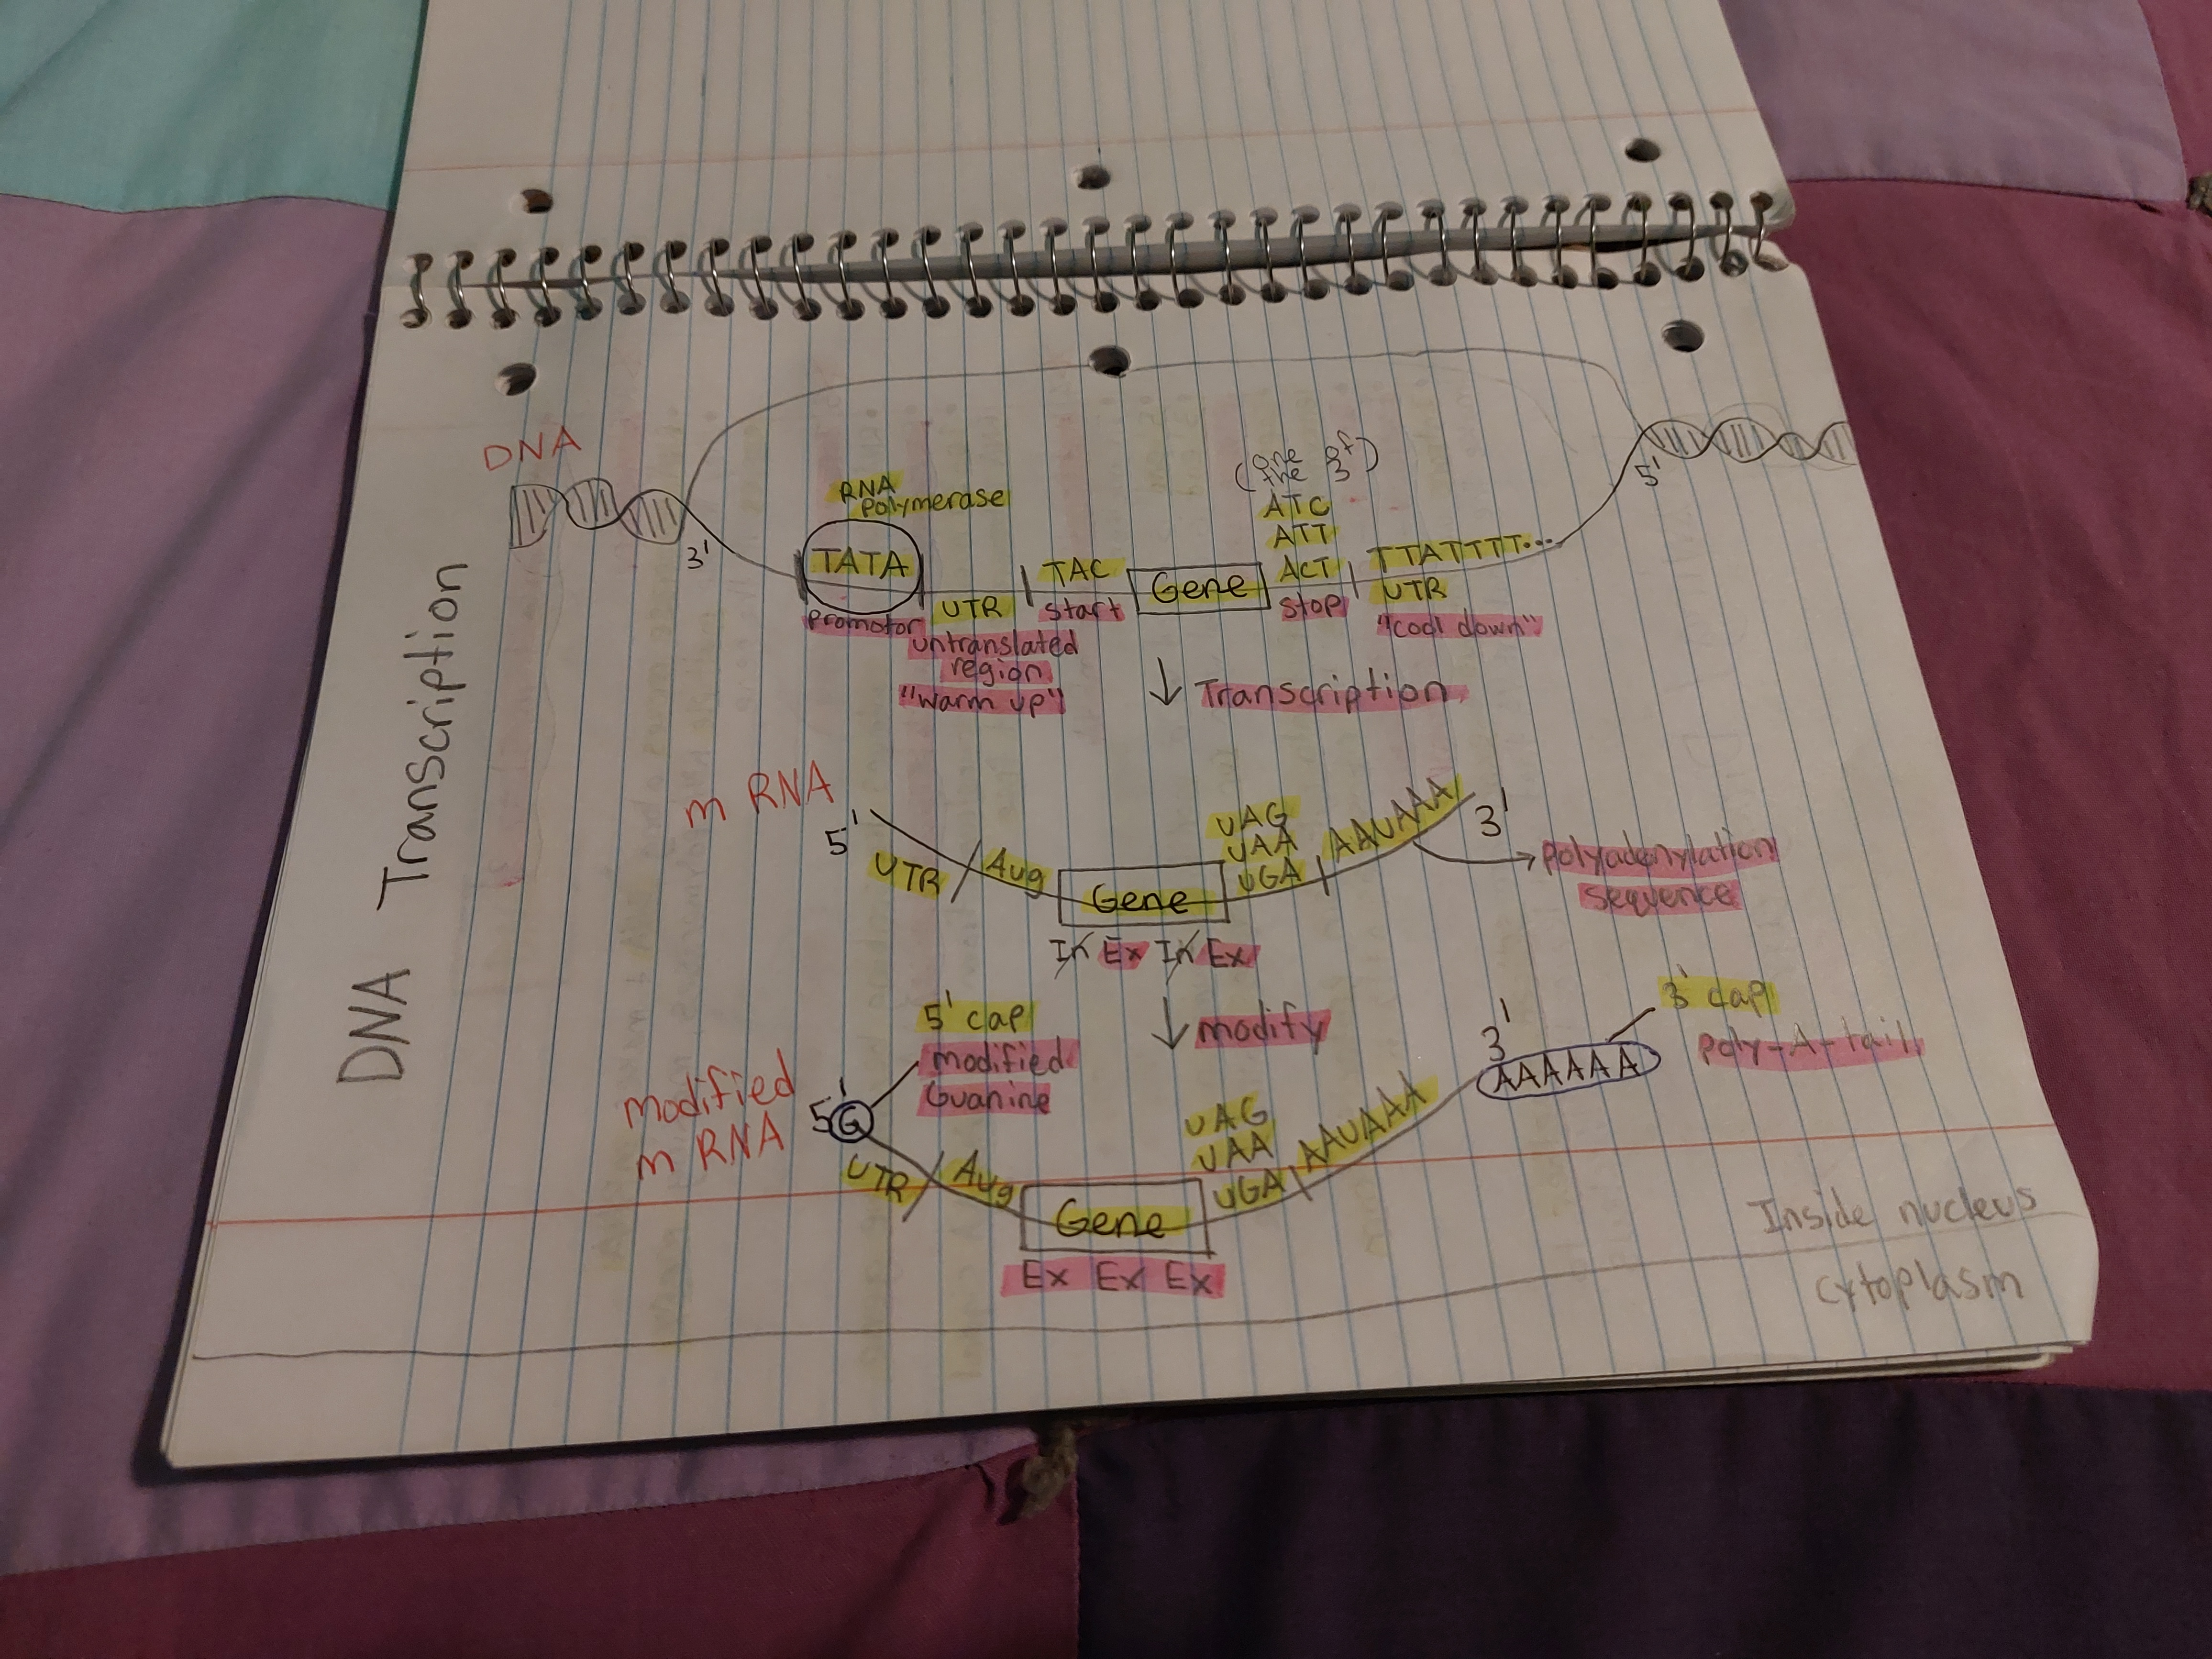 DNA Transcription
DNA
(one of
the 3)
RNA
Polymerase
ATC
ATT
3'
TATA
TAC
Gene
ACT
TTATTTT...
5'
promotor
UTR
start
stop
UTR
untranslated
region
"warm up"
"cool down"
↓ Transcription
m RNA
5'
UTR
Aug
Gene
UAG
UAA
UGA
AAUAAA
3'
polyadenylation
sequence
In Ex In Ex
↓ modify
5' cap
modified
Guanine
3' cap
poly-A-tail
modified
m RNA
5'
G
UTR
Aug
Gene
UAG
UAA
UGA
AAUAAA
3'
AAAAAA
Ex Ex Ex
Inside nucleus
cytoplasm